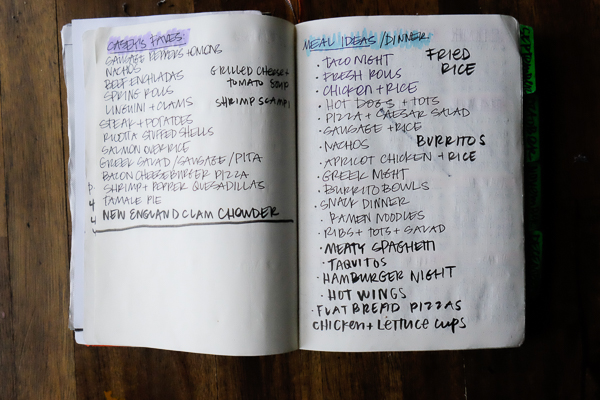 CASEY'S FAVES:
SAUSAGE PEPPERS + ONIONS
NACHOS
BEEF ENCHILADAS
SPRING ROLLS
LINGUINI + CLAMS
STEAK + POTATOES
RICOTTA STUFFED SHELLS
SALMON OVER RICE
GREEK SALAD / SAUSAGE / PITA
BACON CHEESEBURGER PIZZA
SHRIMP + PEPPER QUESADILLAS
TAMALE PIE
NEW ENGLAND CLAM CHOWDER
GRILLED CHEESE +
TOMATO SOUP
SHRIMP SCAMPI
MEAL IDEAS / DINNER
· TACO NIGHT
· FRESH ROLLS
· CHICKEN + RICE
· HOT DOGS + TOTS
· PIZZA + CAESAR SALAD
· SAUSAGE + RICE
· NACHOS
· APRICOT CHICKEN + RICE
· GREEK NIGHT
· BURRITO BOWLS
· SNACK DINNER
· RAMEN NOODLES
· RIBS + TOTS + SALAD
· MEATY SPAGHETTI
· TAQUITOS
· HAMBURGER NIGHT
· HOT WINGS
· FLATBREAD PIZZAS
CHICKEN + LETTUCE CUPS
FRIED
RICE
BURRITOS